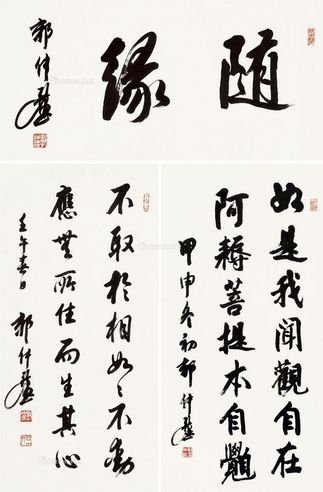 随缘
郭仲选
如是我闻觀自在
阿耨菩提本自觉
甲申冬初郭仲选
不取於相如々不動
應無所住而生其心
壬午春日
郭仲选